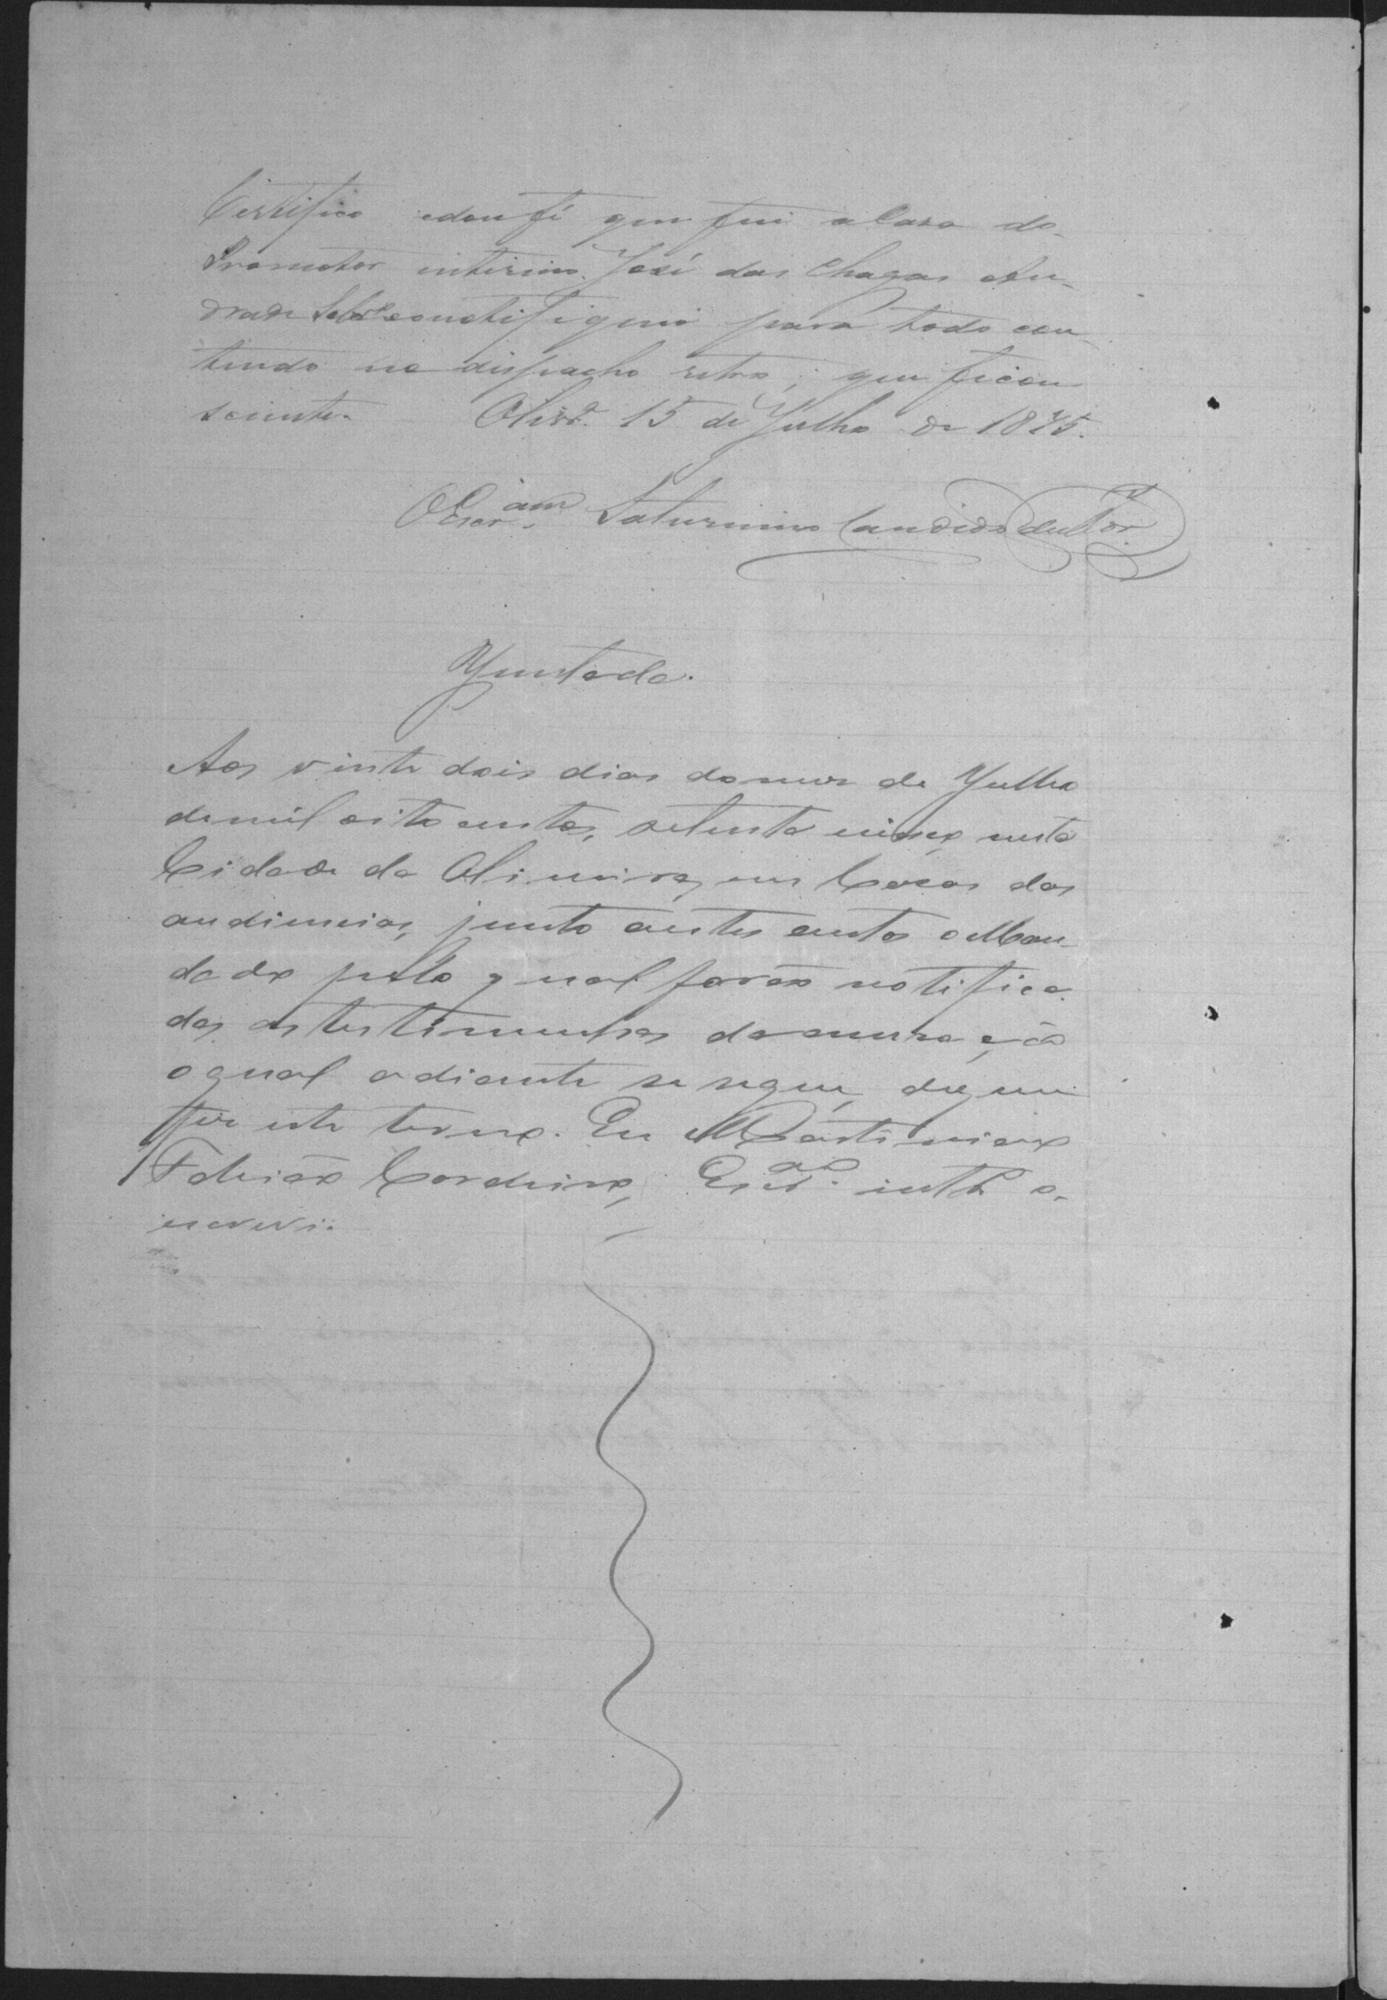 Certifico edou fé que fui a Casa do
Promotor interino José das Chagas An-
drade Sobr.º eonotifiquei para todo con-
tiudo no dispacho retro; que ficou
sciente. Olivr.ª 15 de Julho de 1875.
O Escr.am Saturnino Candido
Juntada.
Aos vinte dois dias do mez de Julho
demil oito centos, setenta cinco, nesta
Cidade da Oliveira, em Cazas das
audiencias, junto aestes autos o Man-
dado pelo qual forão notifica
das as testimunhas da accusação
oqual adiante se segue, doque
fiz este termo. Eu Martiniano
Fabião Cordeiro, Escr.ão intr.º o
escrevi.